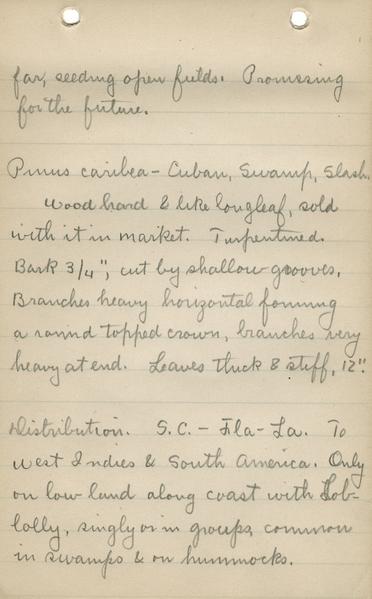 far, seeding open fields. Promising
for the future.
Pinus caribea - Cuban, Swamp, Slash.
Wood hard & like longleaf, sold
with it in market. Turpentined.
Bark 3/4", cut by shallow grooves.
Branches heavy horizontal forming
a round topped crown, branches very
heavy at end. Leaves thick & stiff, 12".
Distribution. S.C. - Fla - La. To
West Indies & South America. Only
on low land along coast with Lob-
lolly, singly or in groups, common
in swamps & on hummocks.